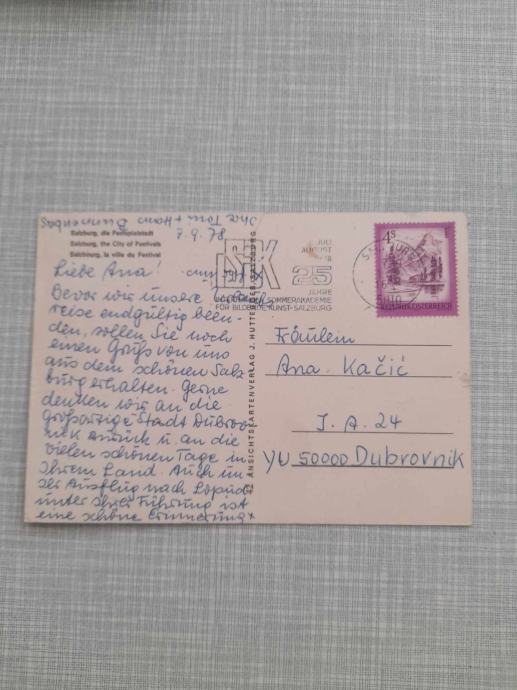 Ihre Toni + Hans
Salzburg, die Festspielstadt
Salzburg, the City of Festivals
Salzbourg, la ville du Festival
7.9.78
Liebe Ana!
Bevor wir unsere
reise endgültig been-
den, sollen Sie noch
einen Gruß von uns
aus dem schönen Salz
burg erhalten. Gerne
denken wir an die
großartige Stadt Dubrov
nik zurück u. an die
vielen schönen Tage in
Ihrem Land. Auch un-
ser Ausflug nach Lopud
unter Ihrer Führung ist
eine schöne Erinnerung
ANSICHTSKARTENVERLAG J. HUTTEGGER SALZBURG
JULI
AUGUST
25
JAHRE
SOMMERAKADEMIE
FÜR BILDENDE KUNST-SALZBURG
4S
REPUBLIK ÖSTERREICH
Fräulein
Ana Kačić
I. A. 24
YU 50000 Dubrovnik